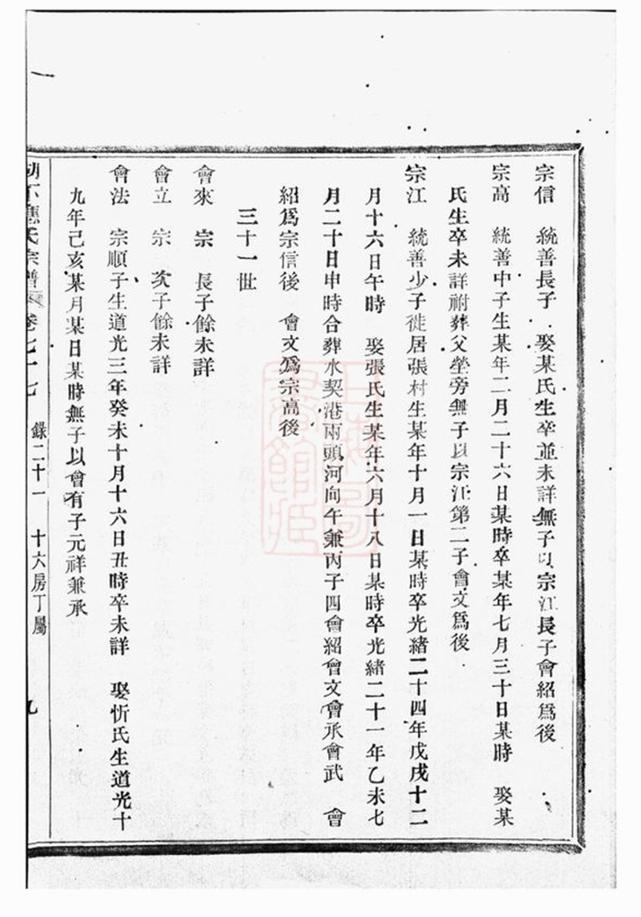 宗信　統善長子　娶某氏生卒並未詳無子以宗江長子會紹爲後
宗高　統善中子生某年二月二十六日某時卒某年七月三十日某時　娶某
氏生卒未詳祔葬父塋旁無子以宗江第二子會文爲後
宗江　統善少子徙居張村生某年十月一日某時卒光緒二十四年戊戌十二
月十六日午時　娶張氏生某年六月十八日某時卒光緒二十一年乙未七
月二十日申時合葬水契港兩頭河向午兼丙子四會紹會文會承會武　會
紹爲宗信後　會文爲宗高後
三十一世
會來　宗　長子餘未詳
會立　宗　次子餘未詳
會法　宗順子生道光三年癸未十月十六日丑時卒未詳　娶忻氏生道光十
九年己亥某月某日某時無子以會有子元祥兼承
下應氏宗譜　卷七十七　錄二十一　十六房丁屬　九